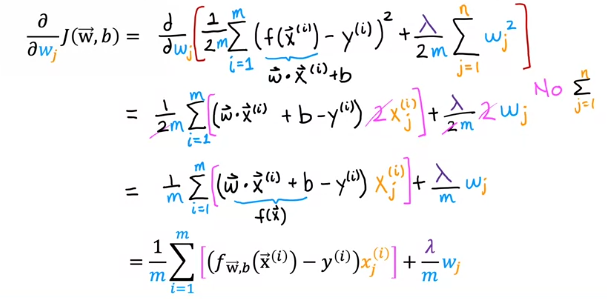 ∂/∂w_j J(w⃗,b) = ∂/∂w_j [ 1/2m ∑_{i=1}^{m} (f(x⃗^(i)) − y^(i))² + λ/2m ∑_{j=1}^{n} w_j² ]
w⃗·x⃗^(i)+b
= 1/2m ∑_{i=1}^{m} [(w⃗·x⃗^(i) + b − y^(i)) 2x_j^(i)] + λ/2m 2w_j
No ∑_{j=1}^{n}
= 1/m ∑_{i=1}^{m} [(w⃗·x⃗^(i) + b − y^(i)) x_j^(i)] + λ/m w_j
f(x⃗)
= 1/m ∑_{i=1}^{m} [(f_{w⃗,b}(x⃗^(i)) − y^(i))x_j^(i)] + λ/m w_j